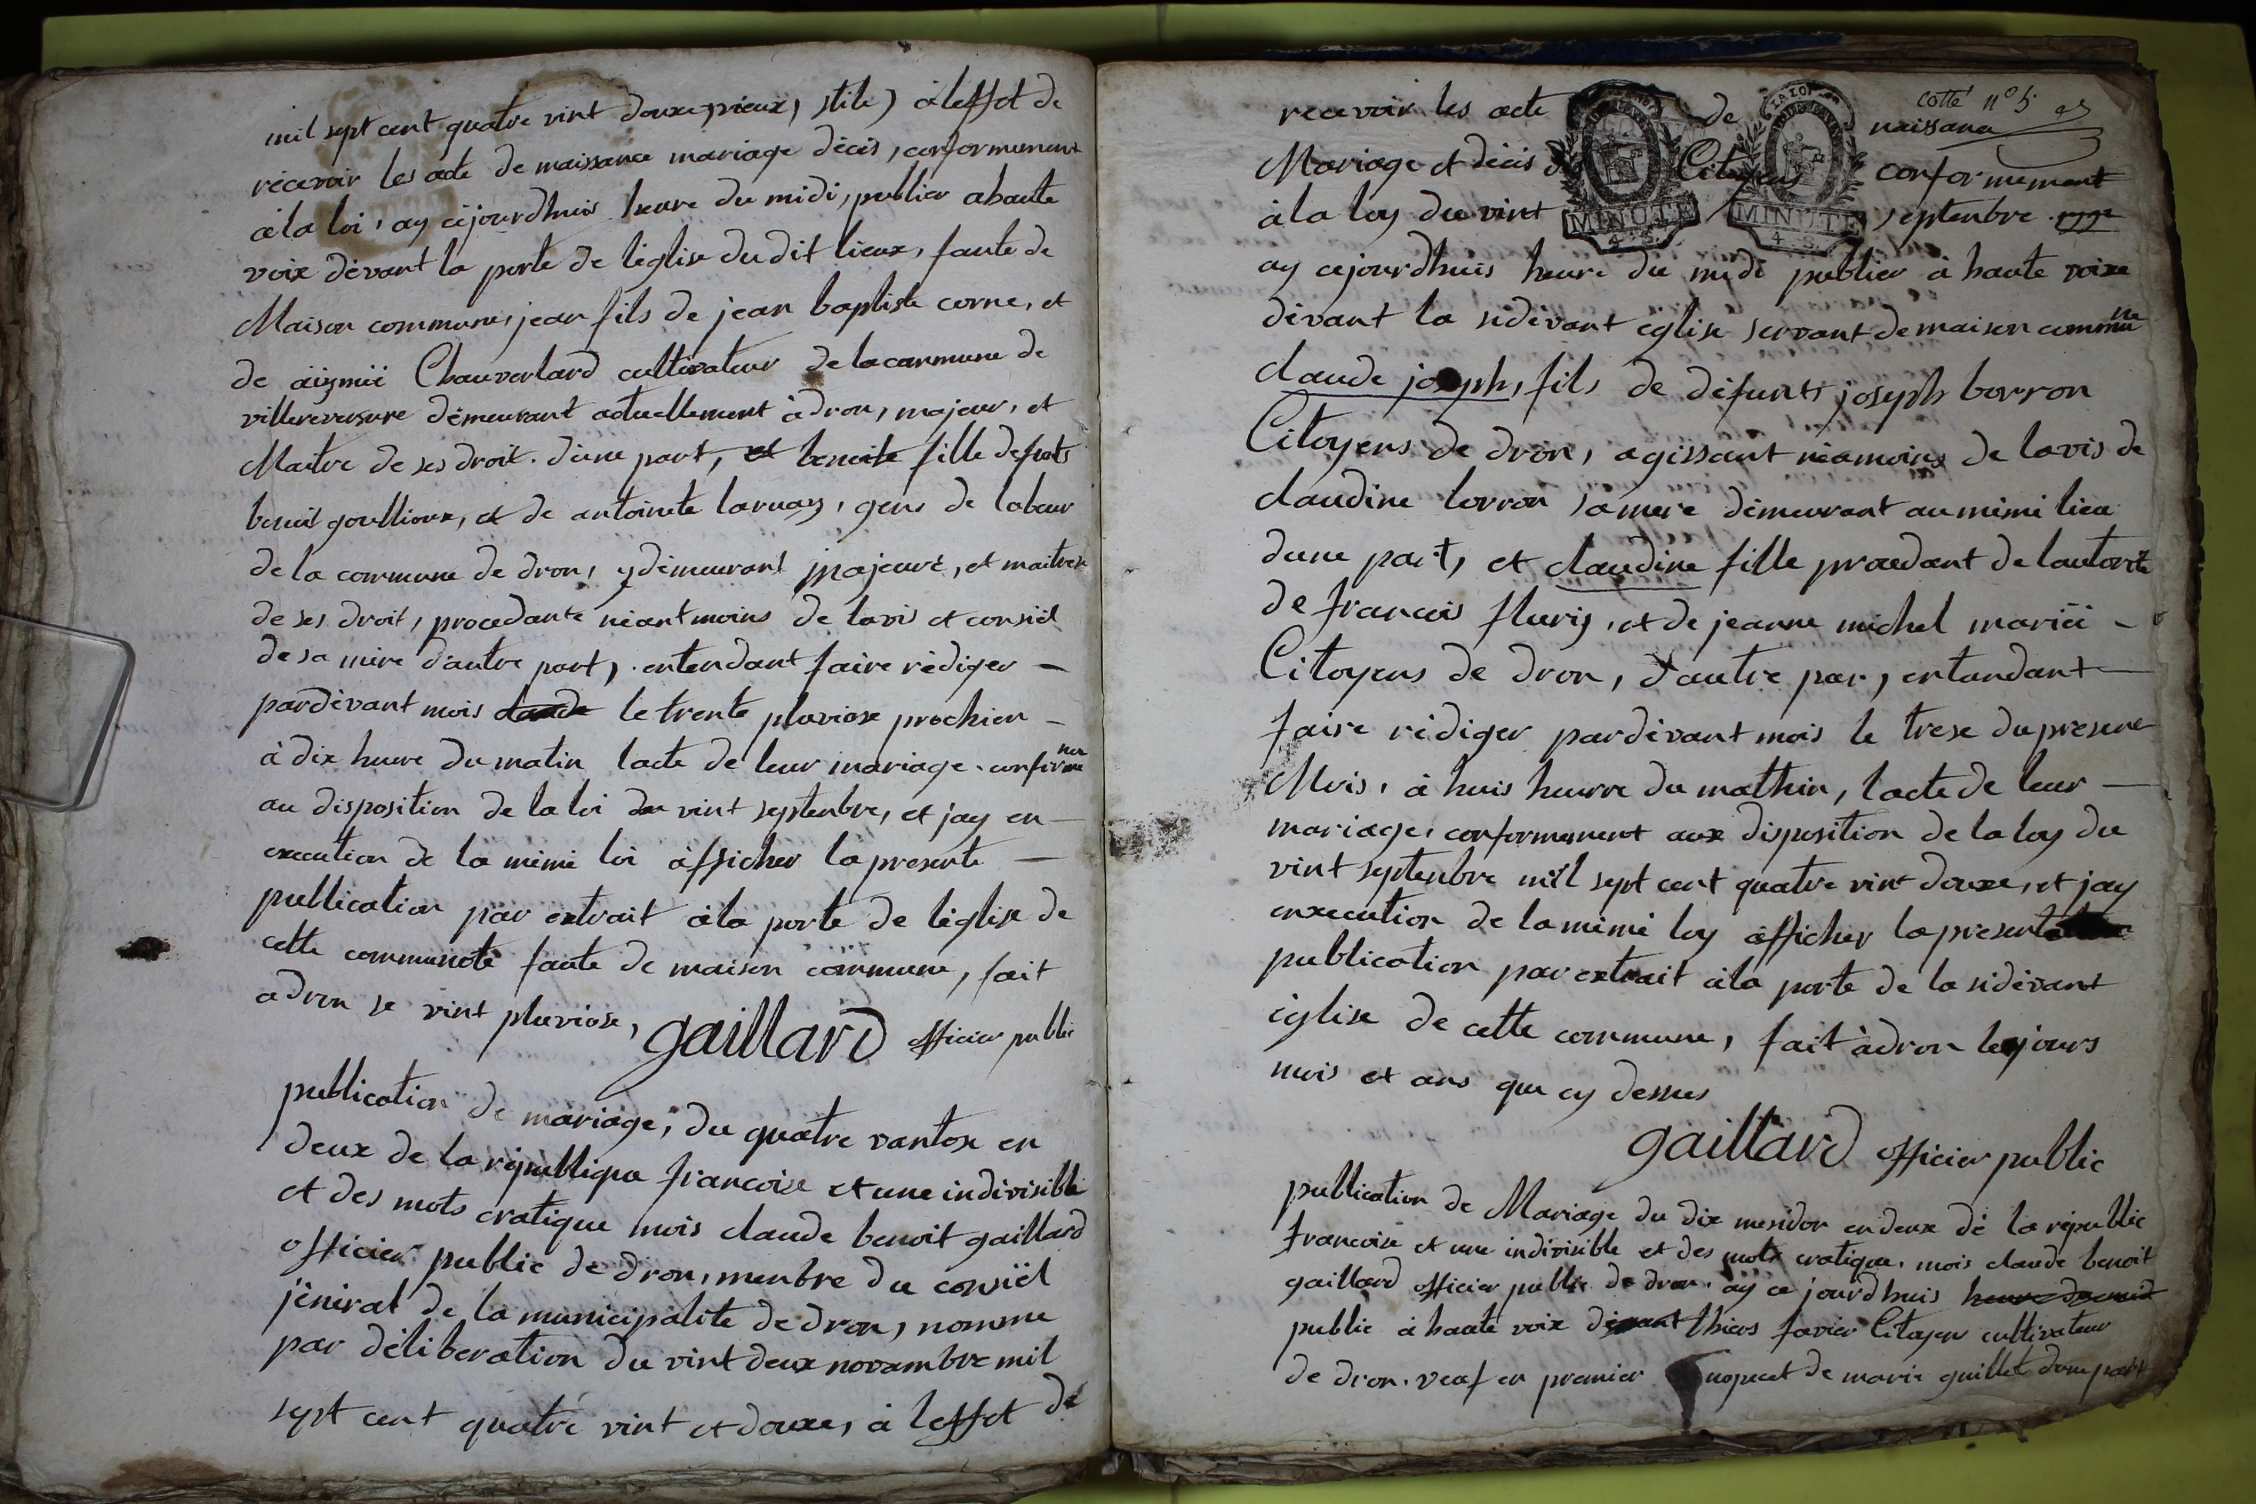 mil sept cent quatre vint douxe, vieux, stile) à leffet de
récevoir les acte de naissance mariage décès, conformement
à la loi, ay cejourdhuis heure du midi, publier a haute
voix dévant la porte de léglise du dit lieux, faute de
Maison commune, jean fils de jean baptiste corne, et
de Chauverlard cultivateur de la commune de
villereversure démeurant actuellement à dron, majeur, et
Maitre de ses droit. dune part, et benoite fille defunts
benoit goullioux, et de antoinete larnay, gens de labeur
de la commune de dron, y démeurant majeure, et maitresse
de ses droit, procedante néantmoins de lavis et consiel
de sa mère dautre part, entendant faire rédiger —
pardévant mois le trente pluviose prochien —
à dix heure du matin lacte de leur mariage. conformenen
au disposition de la loi du vint septenbre, et jay en —
execution de la mémé loi àfficher la presente —
publication par extrait à la porte de léglise de
cette communoté faute de maison commune, fait
a dron se vint pluviose, gaillard officier public
publication de mariage, du quatre vantose en
deux de la républiqua francoise et une indivisible
et des mots cratique mois claude benoit gaillard
officier public de dron, menbre du consiel
jénéral de la municipalité de dron, nomme
par déliberation du vint deux novambre mil
sept cent quatré vint et douxe, à leffet de
cotté n° 5
recevoir les acte de naissance
Mariage et décés Citoyens conformement
à la loy du vint septenbre 1792
MINUTE MINUTE
4 S. 4 S.
ay cejourdhuis heure du midi publier à haute voixe
dévant la sidévant église servant de maison commune
claude joseph, fils de défunts joseph borron
Citoyens de dron, agissant néamoins de lavis de
claudine lorron sa mere démeurant au mémé lieu
dune part, et claudine fille procedant de lautorité
de francois fleury, et de jeanne michel mariéé —
Citoyens de dron, d'autre par, entandant —
faire rédiger pardévant mois le trese du presene
Mois, à huis heurre du mathin, lacte de leur —
mariage, conformement aux disposition de la loy du
vint septenbre mil sept cent quatre vint douxe, et jay
enxecution de la mémé loy àfficher la presente
publication par extrait à la porte de la sidévant
église de cette commune, fait à dron les jours
mois et ans que cy dessus
gaillard officier public
publication de Mariage du dix mesidor en deux dé la républic
francoise et une indivisible et des mots cratique, mois claude benoit
gaillard officier public de dron. ay ce jourdhuis heure du midi
public à haute voix dévant thiers favier Citoyen cultivateur
de dron. veuf en premier de marie guillet dune part